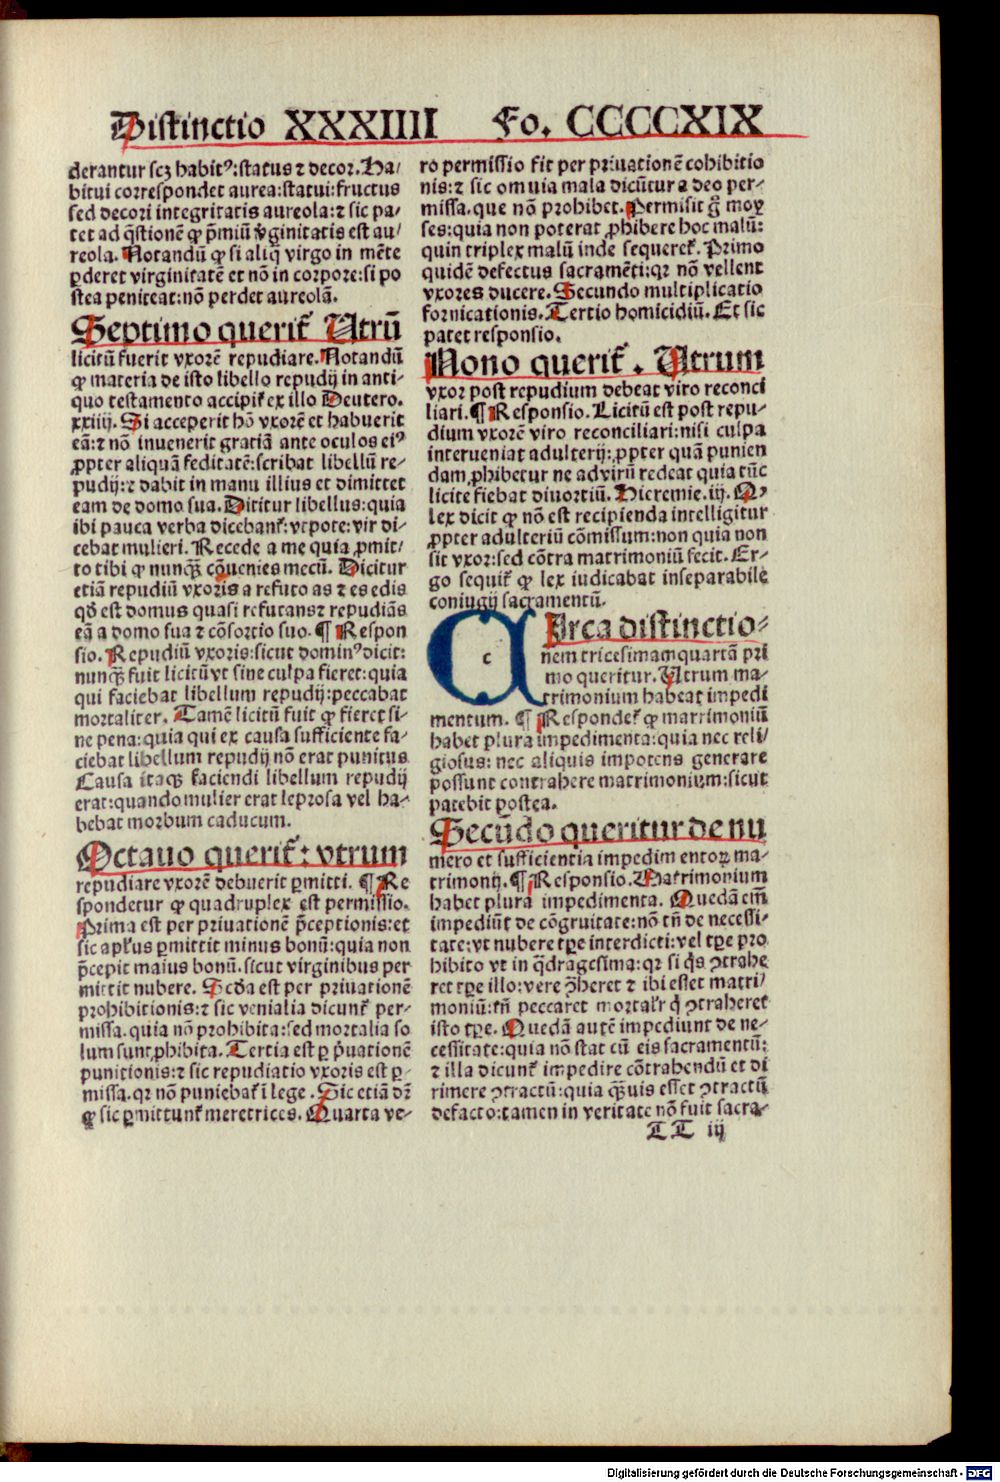 Distinctio XXXIIII Fo. CCCCXIX
derantur scꝫ habitꝰ:status ⁊ decor. Ha⸗
bitui correspondet aurea:statui:fructus
sed decori integritatis aureola:⁊ sic pa⸗
tet ad q̄stionē ꝙ p̄miū v̓ginitatis est au⸗
reola. Notandū ꝙ si aliq̄ virgo in mēte
ꝑderet virginitatē et nō in corpore:si po
stea peniteat:nō perdet aureolā.
Septimo querit᷑ Utrū
licitū fuerit vxorē repudiare. Notandū
ꝙ materia de isto libello repudij in anti⸗
quo testamento accipit᷑ ex illo Deutero.
xxiiij. Si acceperit hō vxorē et habuerit
eā:⁊ nō inuenerit gratiā ante oculos eiꝰ
ꝓpter aliquā feditatē:scribat libellū re⸗
pudij:⁊ dabit in manu illius et dimittet
eam de domo sua. Dicitur libellus:quia
ibi pauca verba dicebant᷑:vtpote:vir di⸗
cebat mulieri. Recede a me quia ꝓmit⸗
to tibi ꝙ nunꝗ̄ cōuenies mecū. Dicitur
etiā repudiū vxoris a refuto as ⁊ es edis
qd̄ est domus quasi refutans ⁊ repudiās
eā a domo sua ⁊ cōsortio suo. ¶ Respon
sio. Repudiū vxoris:sicut dominꝰ dicit:
nunꝗ̄ fuit licitū vt sine culpa fieret:quia
qui faciebat libellum repudij:peccabat
mortaliter. Tamē licitū fuit ꝙ fieret si⸗
ne pena:quia qui ex causa sufficiente fa⸗
ciebat libellum repudij nō erat punitus
Causa itaqꝫ faciendi libellum repudij
erat:quando mulier erat leprosa vel ha⸗
bebat morbum caducum.
Octauo querit᷑: vtrum
repudiare vxorē debuerit ꝑmitti. ¶ Re
spondetur ꝙ quadruplex est permissio.
Prima est per priuationē p̄ceptionis:et
sic apl̓us ꝑmittit minus bonū:quia non
p̄cepit maius bonū. sicut virginibus per
mittit nubere. Scd̓a est per priuationē
prohibitionis:⁊ sic venialia dicunt᷑ per⸗
missa. quia nō prohibita:sed mortalia so
lum sunt ꝓhibita. Tertia est ꝑ p̓uationē
punitionis:⁊ sic repudiatio vxoris est ꝑ⸗
missa. qr nō puniebat᷑ ī lege. Sic etiā dr̄
ꝙ sic ꝑmittunt᷑ meretrices. Quarta ve⸗
ro permissio fit per priuationē cohibitio
nis:⁊ sic omnia mala dicūtur a deo per⸗
missa. que nō prohibet. Permisit g̊ moy
ses:quia non poterat ꝓhibere hoc malū:
quin triplex malū inde sequeret᷑. Primo
quidē defectus sacramēti:qr nō vellent
vxores ducere. Secundo multiplicatio
fornicationis. Tertio homicidiū. Et sic
patet responsio.
Nono querit᷑. Utrum
vxor post repudium debeat viro reconci
liari. ¶ Responsio. Licitū est post repu⸗
dium vxorē viro reconciliari:nisi culpa
interueniat adulterij:ꝓpter quā punien
dam ꝓhibetur ne ad virū redeat quia tūc
licite fiebat diuortiū. Hieremie. iij. Q⸗
lex dicit ꝙ nō est recipienda intelligitur
ꝓpter adulteriū cōmissum:non quia non
sit vxor:sed cōtra matrimoniū fecit. Er⸗
go sequit᷑ ꝙ lex iudicabat inseparabile
coniugij sacramentū.
c
CIrca distinctio⸗
nem tricesimamquartā pri
mo queritur. Utrum ma⸗
trimonium habeat impedi
mentum. ¶ Respondet᷑ ꝙ matrimoniū
habet plura impedimenta:quia nec reli⸗
giosus: nec aliquis impotens generare
possunt contrahere matrimonium:sicut
patebit postea.
Secūdo queritur de nu
mero et sufficientia impedimentoꝝ ma⸗
trimonij. ¶ Responsio. Matrimonium
habet plura impedimenta. Quedā em̄
impediūt de cōgruitate:nō tn̄ de necessi⸗
tate:vt nubere tꝑe interdicti:vel tꝑe pro
hibito vt in q̄dragesima:qr si q̓s ꝯtrahe
ret tꝑe illo:vere ꝯheret ⁊ ibi esset matri⸗
moniū:tn̄ peccaret mortalr̓ q̓ ꝯtraheret
isto tꝑe. Quedā autē impediunt de ne⸗
cessitate:quia nō stat cū eis sacramentū:
⁊ illa dicunt᷑ impedire cōtrahendū et di
rimere ꝯtractū:quia ꝗ̄uis esset ꝯtractū
defacto:tamen in veritate nō fuit sacra⸗
TT iij
Digitalisierung gefördert durch die Deutsche Forschungsgemeinschaft - DFG